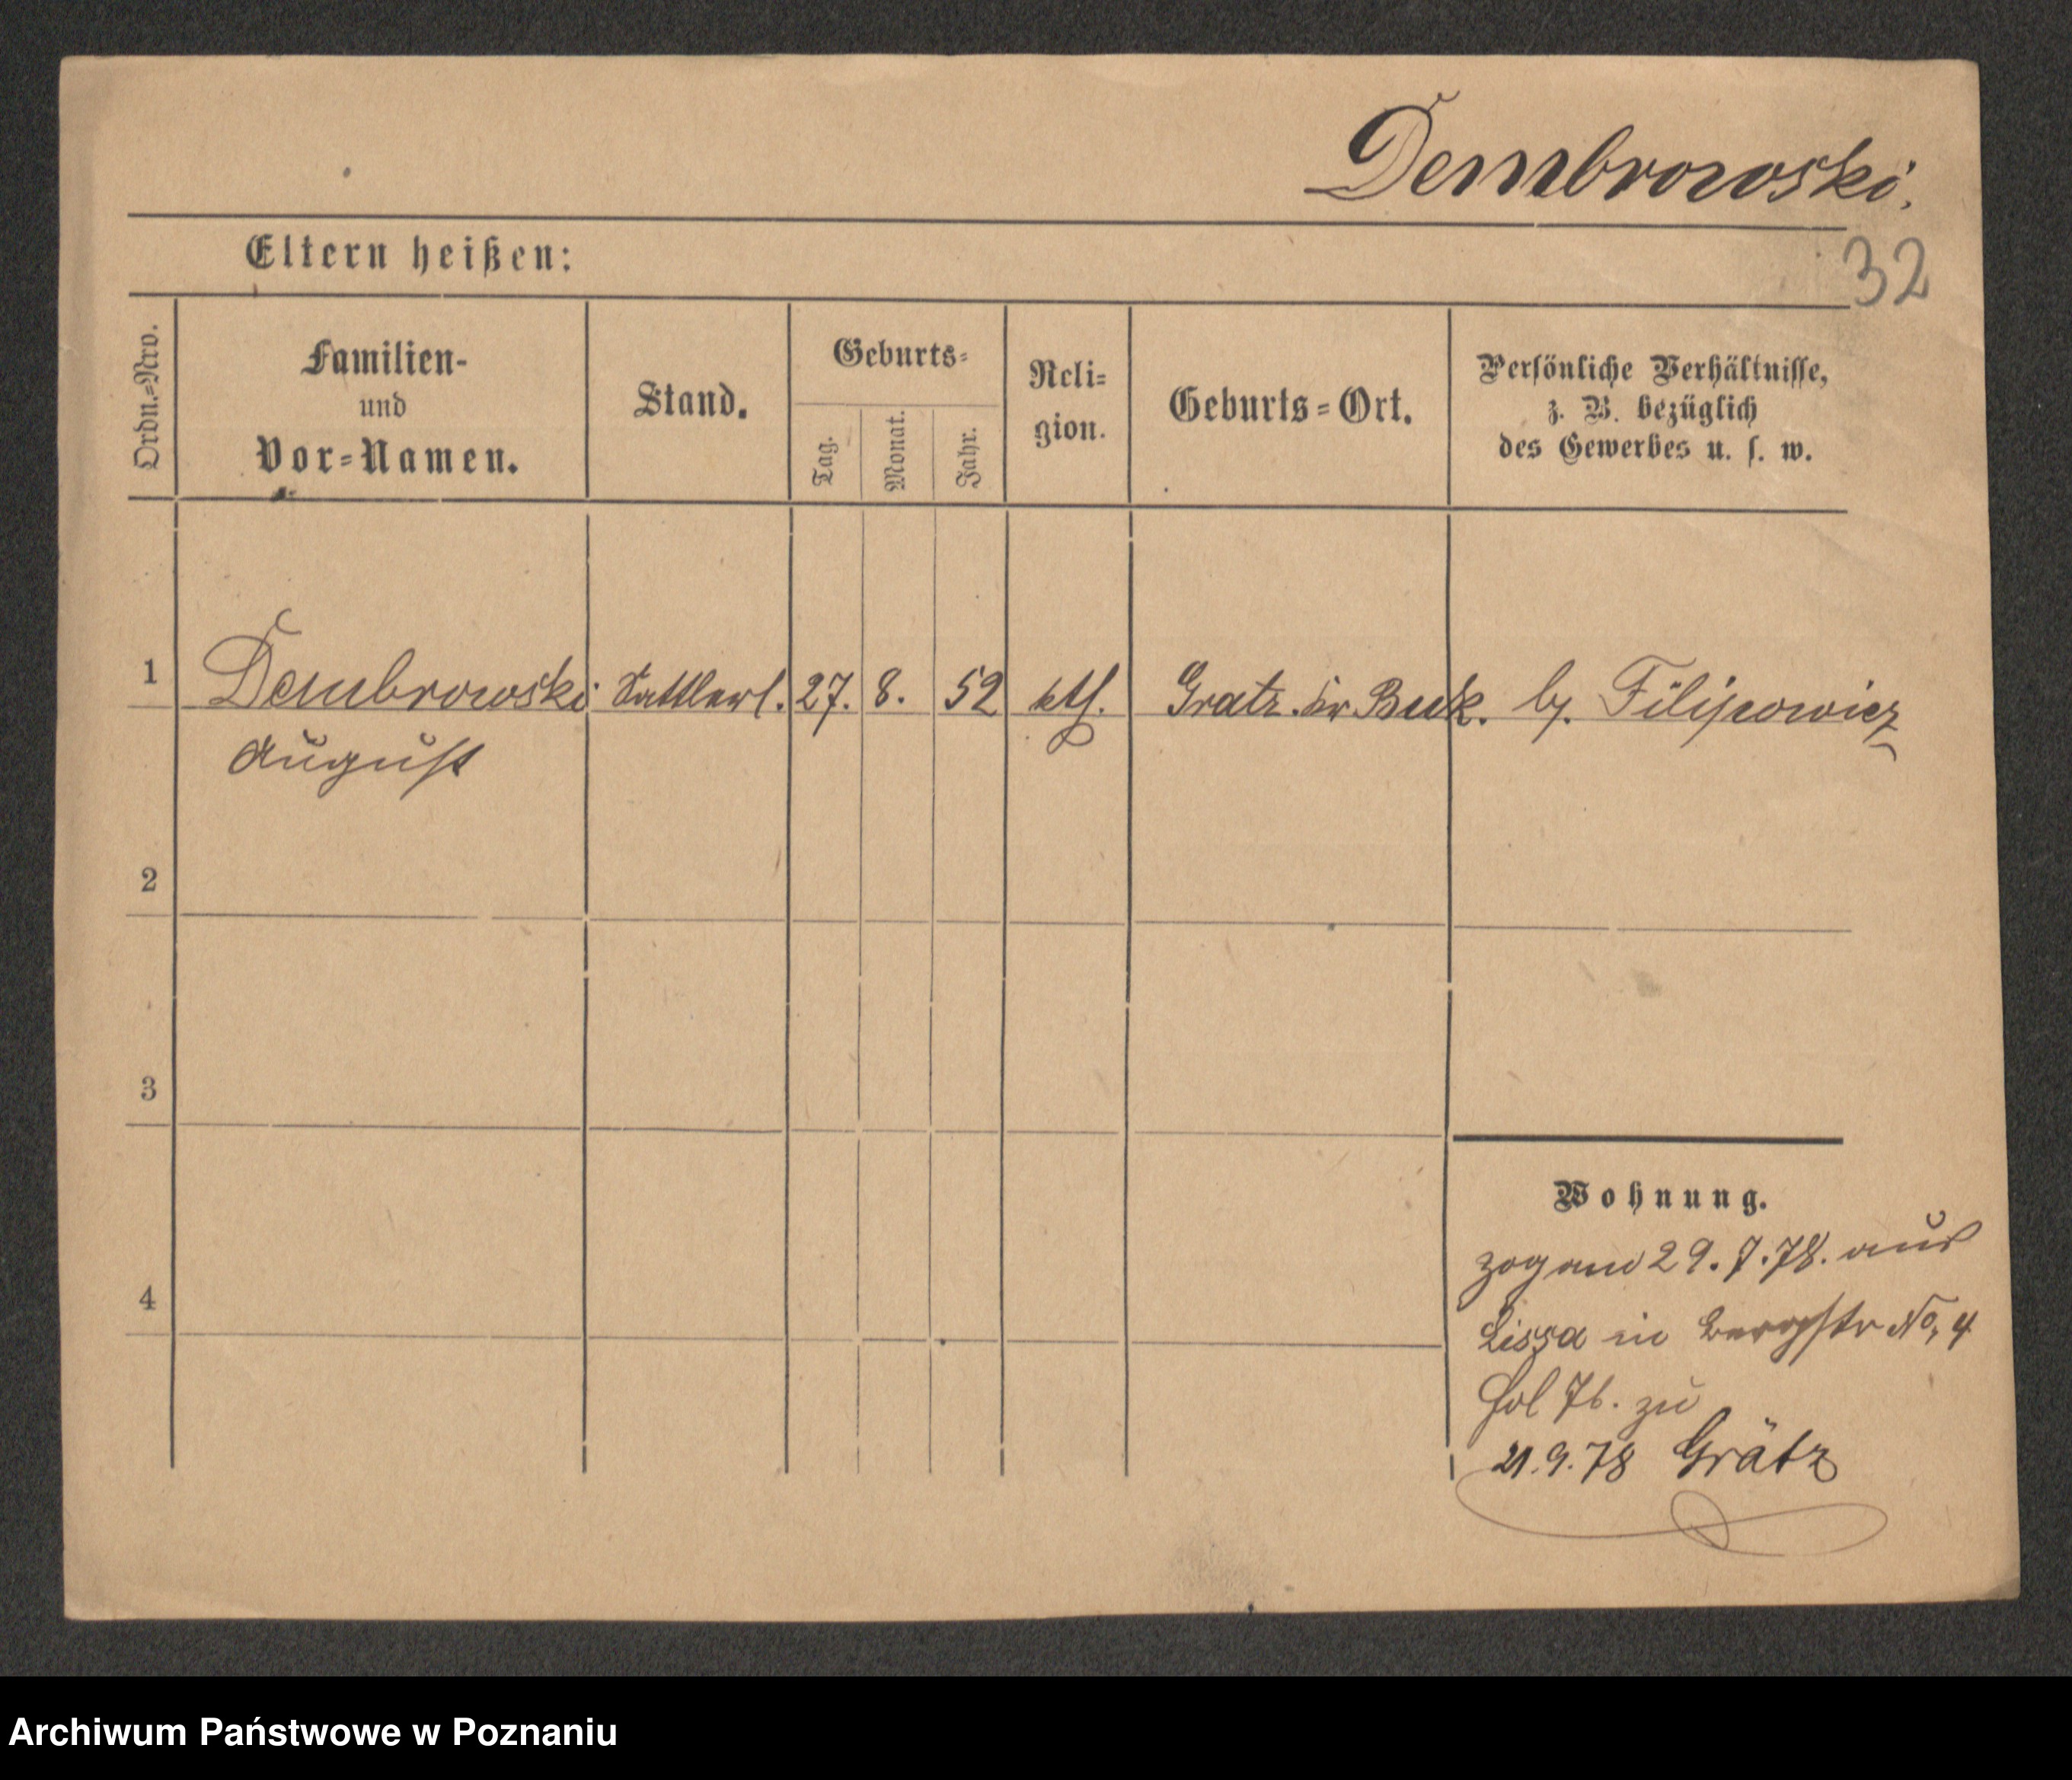 Dembrowski.
32
Eltern heißen:
Ordn.-Nro.
Familien-
und
Vor-Namen.
Stand.
Geburts-
Tag.
Monat.
Jahr.
Reli-
gion.
Geburts-Ort.
Persönliche Verhältnisse,
z. B. bezüglich
des Gewerbes u. s. w.
1 Dembrowski Sattlerl. 27. 8. 52 kth. Gratz. Kr Buk. by. Filipowicz
August
2
3
4
Wohnung.
zog am 29.7.78. aus
Lissa in Bergstr No, 4
fol 76. zu
21.9.78 Grätz
Archiwum Państwowe w Poznaniu